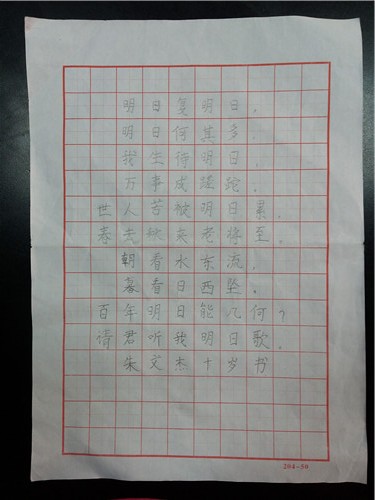 明日复明日，
明日何其多．
我生待明日，
万事成蹉跎．
世人苦被明日累，
春去秋来老将至。
朝看水东流，
暮看日西坠．
百年明日能几何？
请君听我明日歌。
朱文杰十岁书
204-50